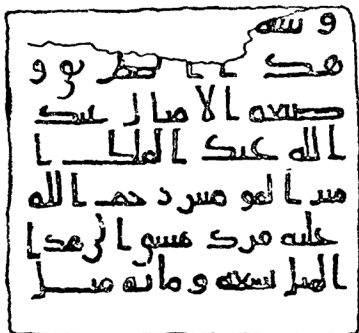 هذا الطريق و
صنعة الاميال عبد
الله عبد الملك ا
مير المومنين رحمة الله
عليه من دمشق الى هذا
الميل تسعة ومائة ميل